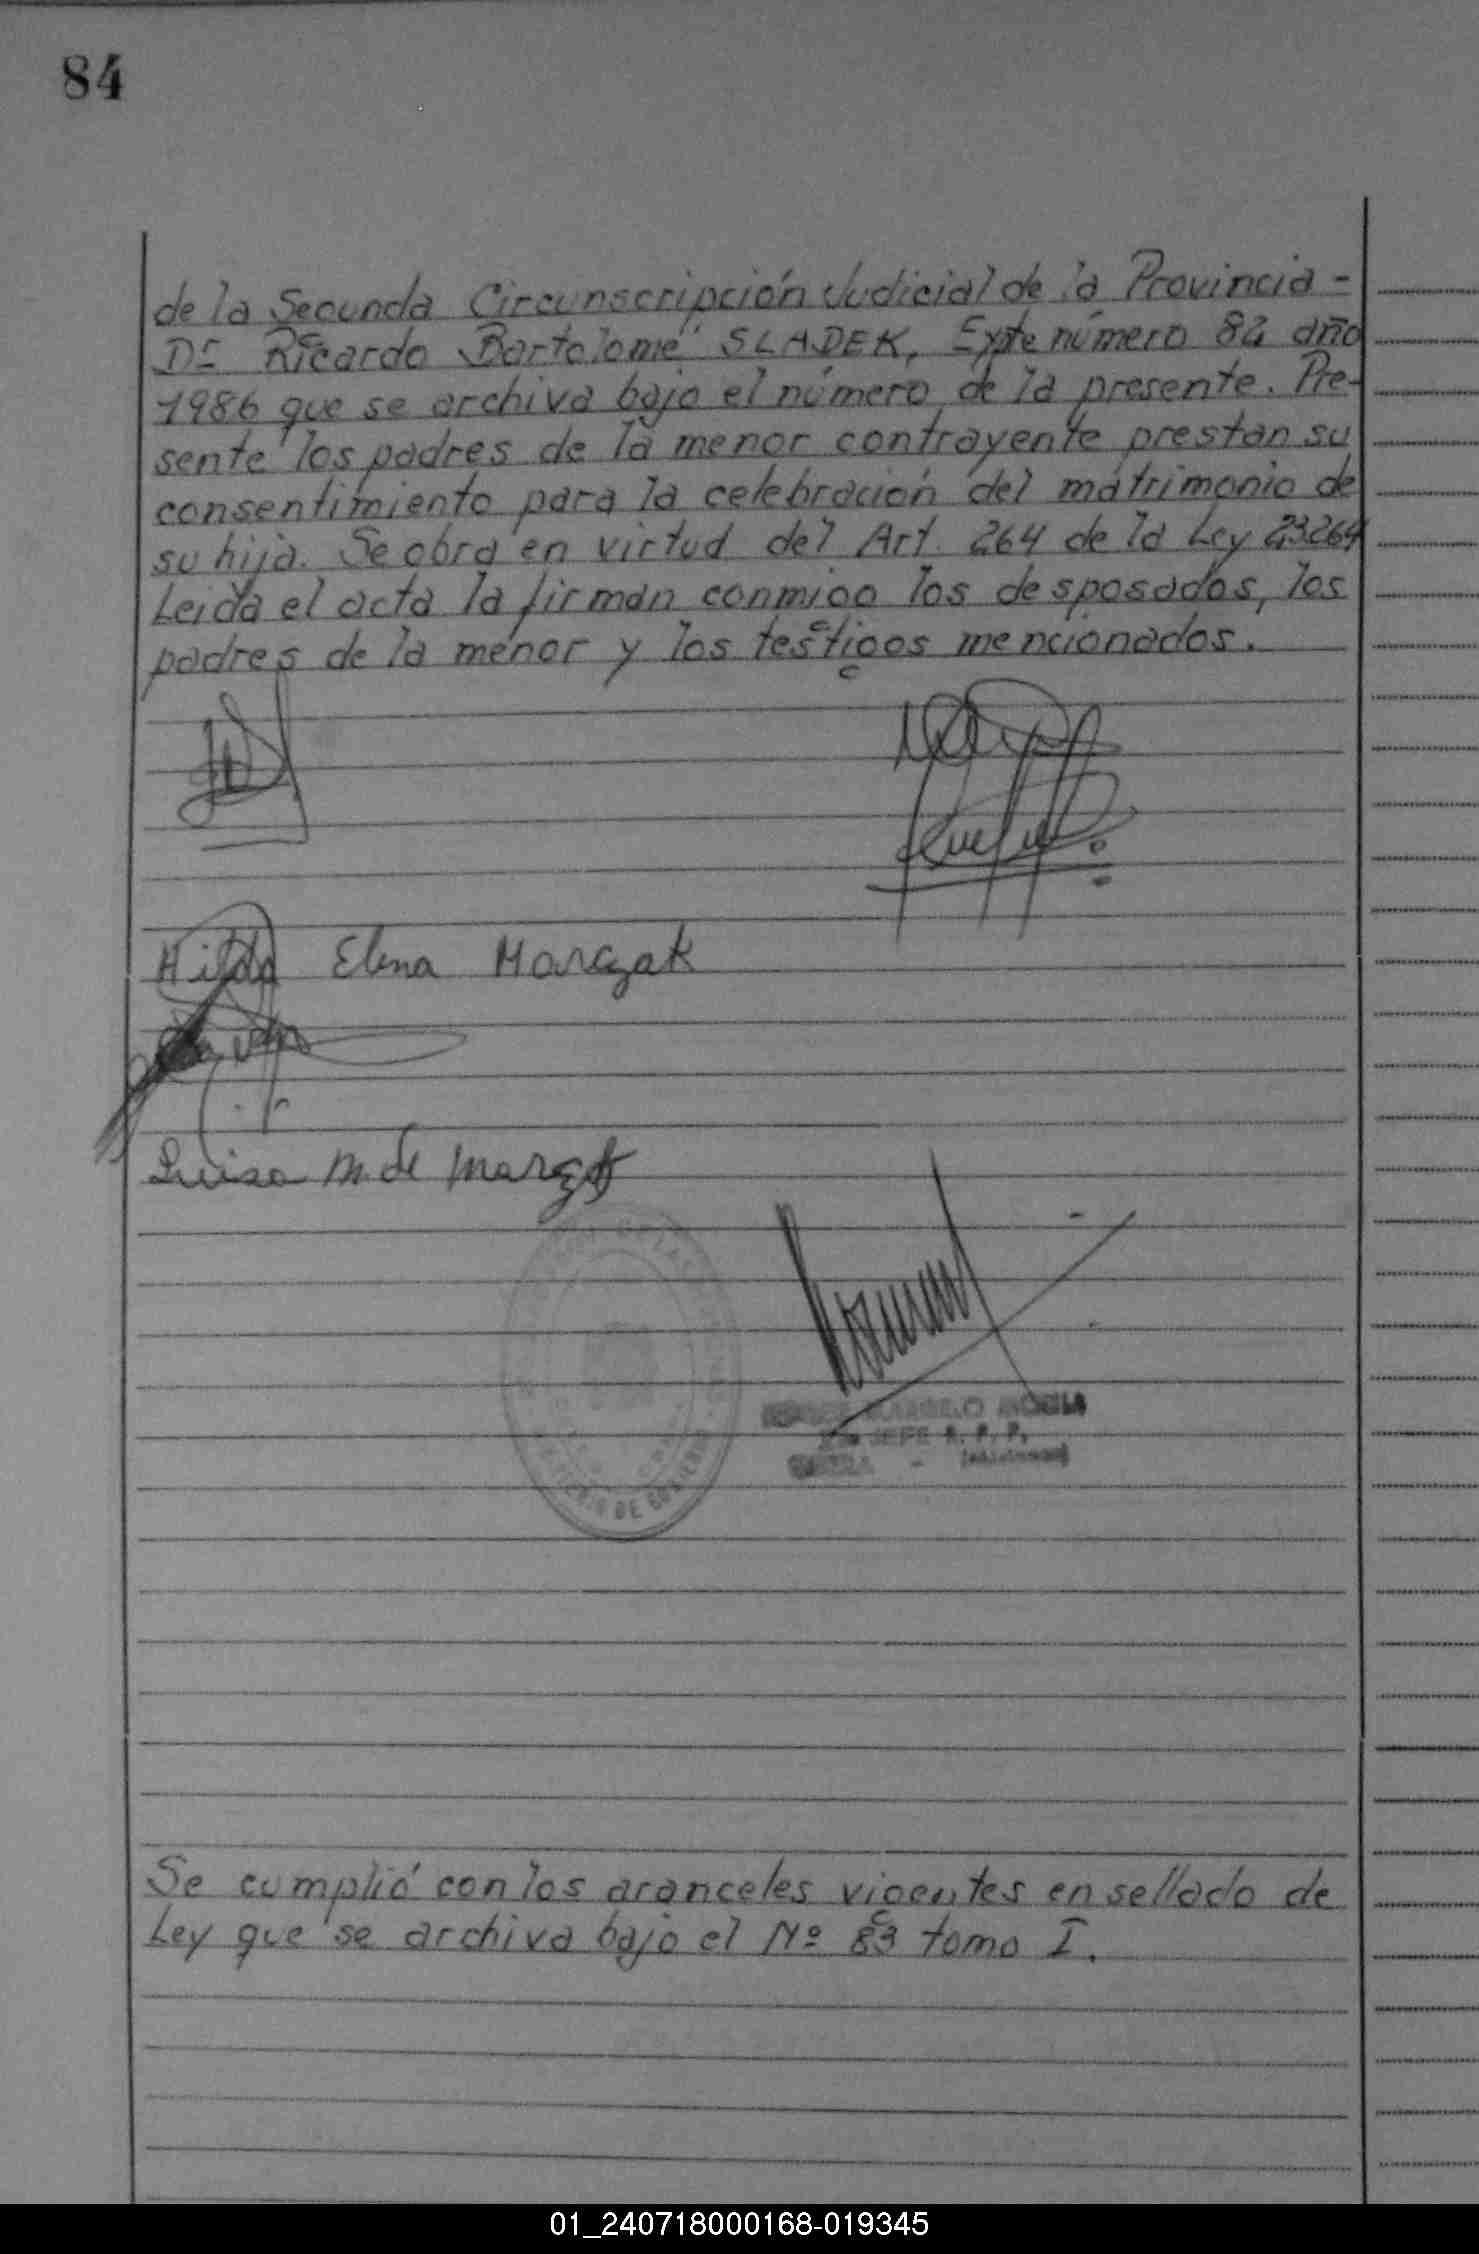 84
de la Segunda Circunscripción Judicial de la Provincia -
Dr Ricardo Bartolomé SLADEK, Expte número 84 año
1986 que se archiva bajo el número de la presente. Pre-
sente los padres de la menor contrayente prestan su
consentimiento para la celebración del matrimonio de
su hija. Se obra en virtud del Art. 264 de la Ley 23264
Leida el acta la firman conmigo los desposados, los
padres de la menor y los testigos mencionados.
Hilda Elena Marczak
Luisa M. de
JEFE R. P. P.
DE GOBIERNO
Se cumplió con los aranceles vigentes en sellado de
Ley que se archiva bajo el Nº 83 tomo I.
01_240718000168-019345